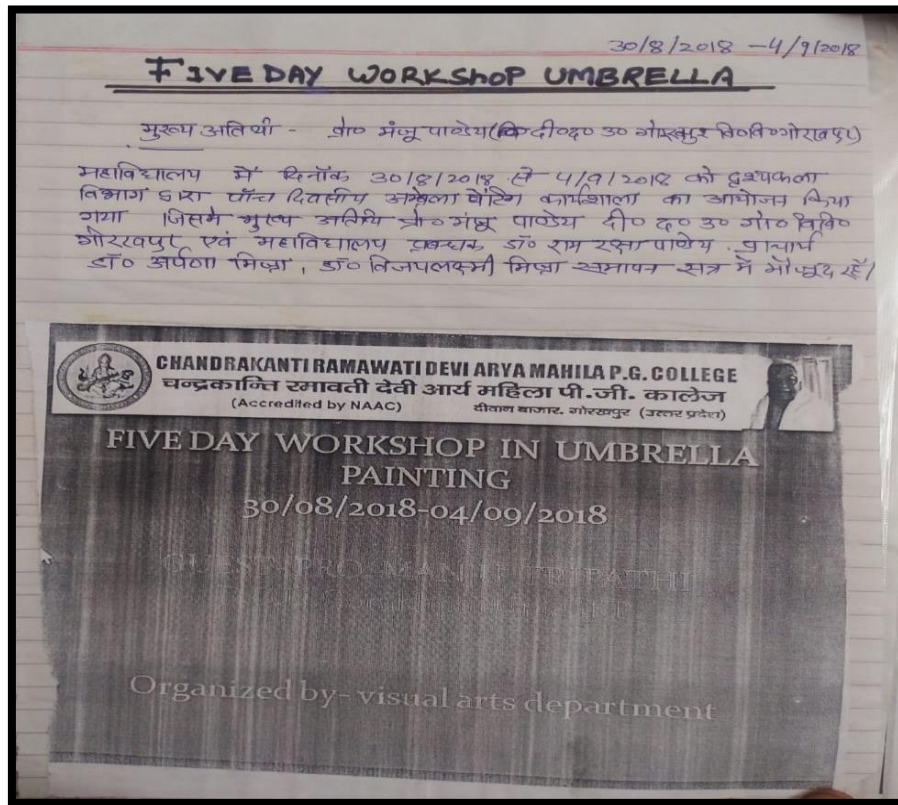 30/8/2018 - 4/9/2018
FIVE DAY WORKSHOP UMBRELLA
मुख्य अतिथी - प्रो० मंजू पाण्डेय (दी०द० उ गोरखपुर वि०वि० गोरखपुर)
महाविद्यालय में दिनाँक 30/8/2018 से 4/9/2018 को दृश्यकला
विभाग द्वारा पाँच दिवसीय अम्ब्रेला पेंटिंग कार्यशाला का आयोजन किया
गया जिसमे मुख्य अतिथि प्रो० मंजू पाण्डेय दी० द० उ० गो० वि०वि०
गोरखपुर एवं महाविद्यालय प्रबन्धक डॉ० राम रक्षा पाण्डेय. प्राचार्य
डॉ० अर्पणा मिश्रा, डॉ० विजयलक्ष्मी मिश्रा समापन सत्र में मौजूद रहें।
CHANDRAKANTI RAMAWATI DEVI ARYA MAHILA P.G. COLLEGE
चन्द्रकान्ति रमावती देवी आर्य महिला पी.जी. कालेज
(Accredited by NAAC) दीवान बाजार, गोरखपुर (उत्तर प्रदेश)
FIVE DAY WORKSHOP IN UMBRELLA
PAINTING
30/08/2018-04/09/2018
GUEST- PRO. MANJU TRIPATHI
Organized by- visual arts department